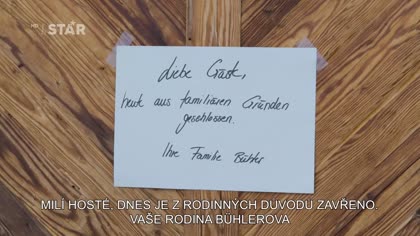 HD STAR
Liebe Gäste,
heute aus familiären Gründen
geschlossen.
Ihre Familie Bühler
MILÍ HOSTÉ, DNES JE Z RODINNÝCH DUVODU ZAVŘENO.
VAŠE RODINA BÜHLEROVA